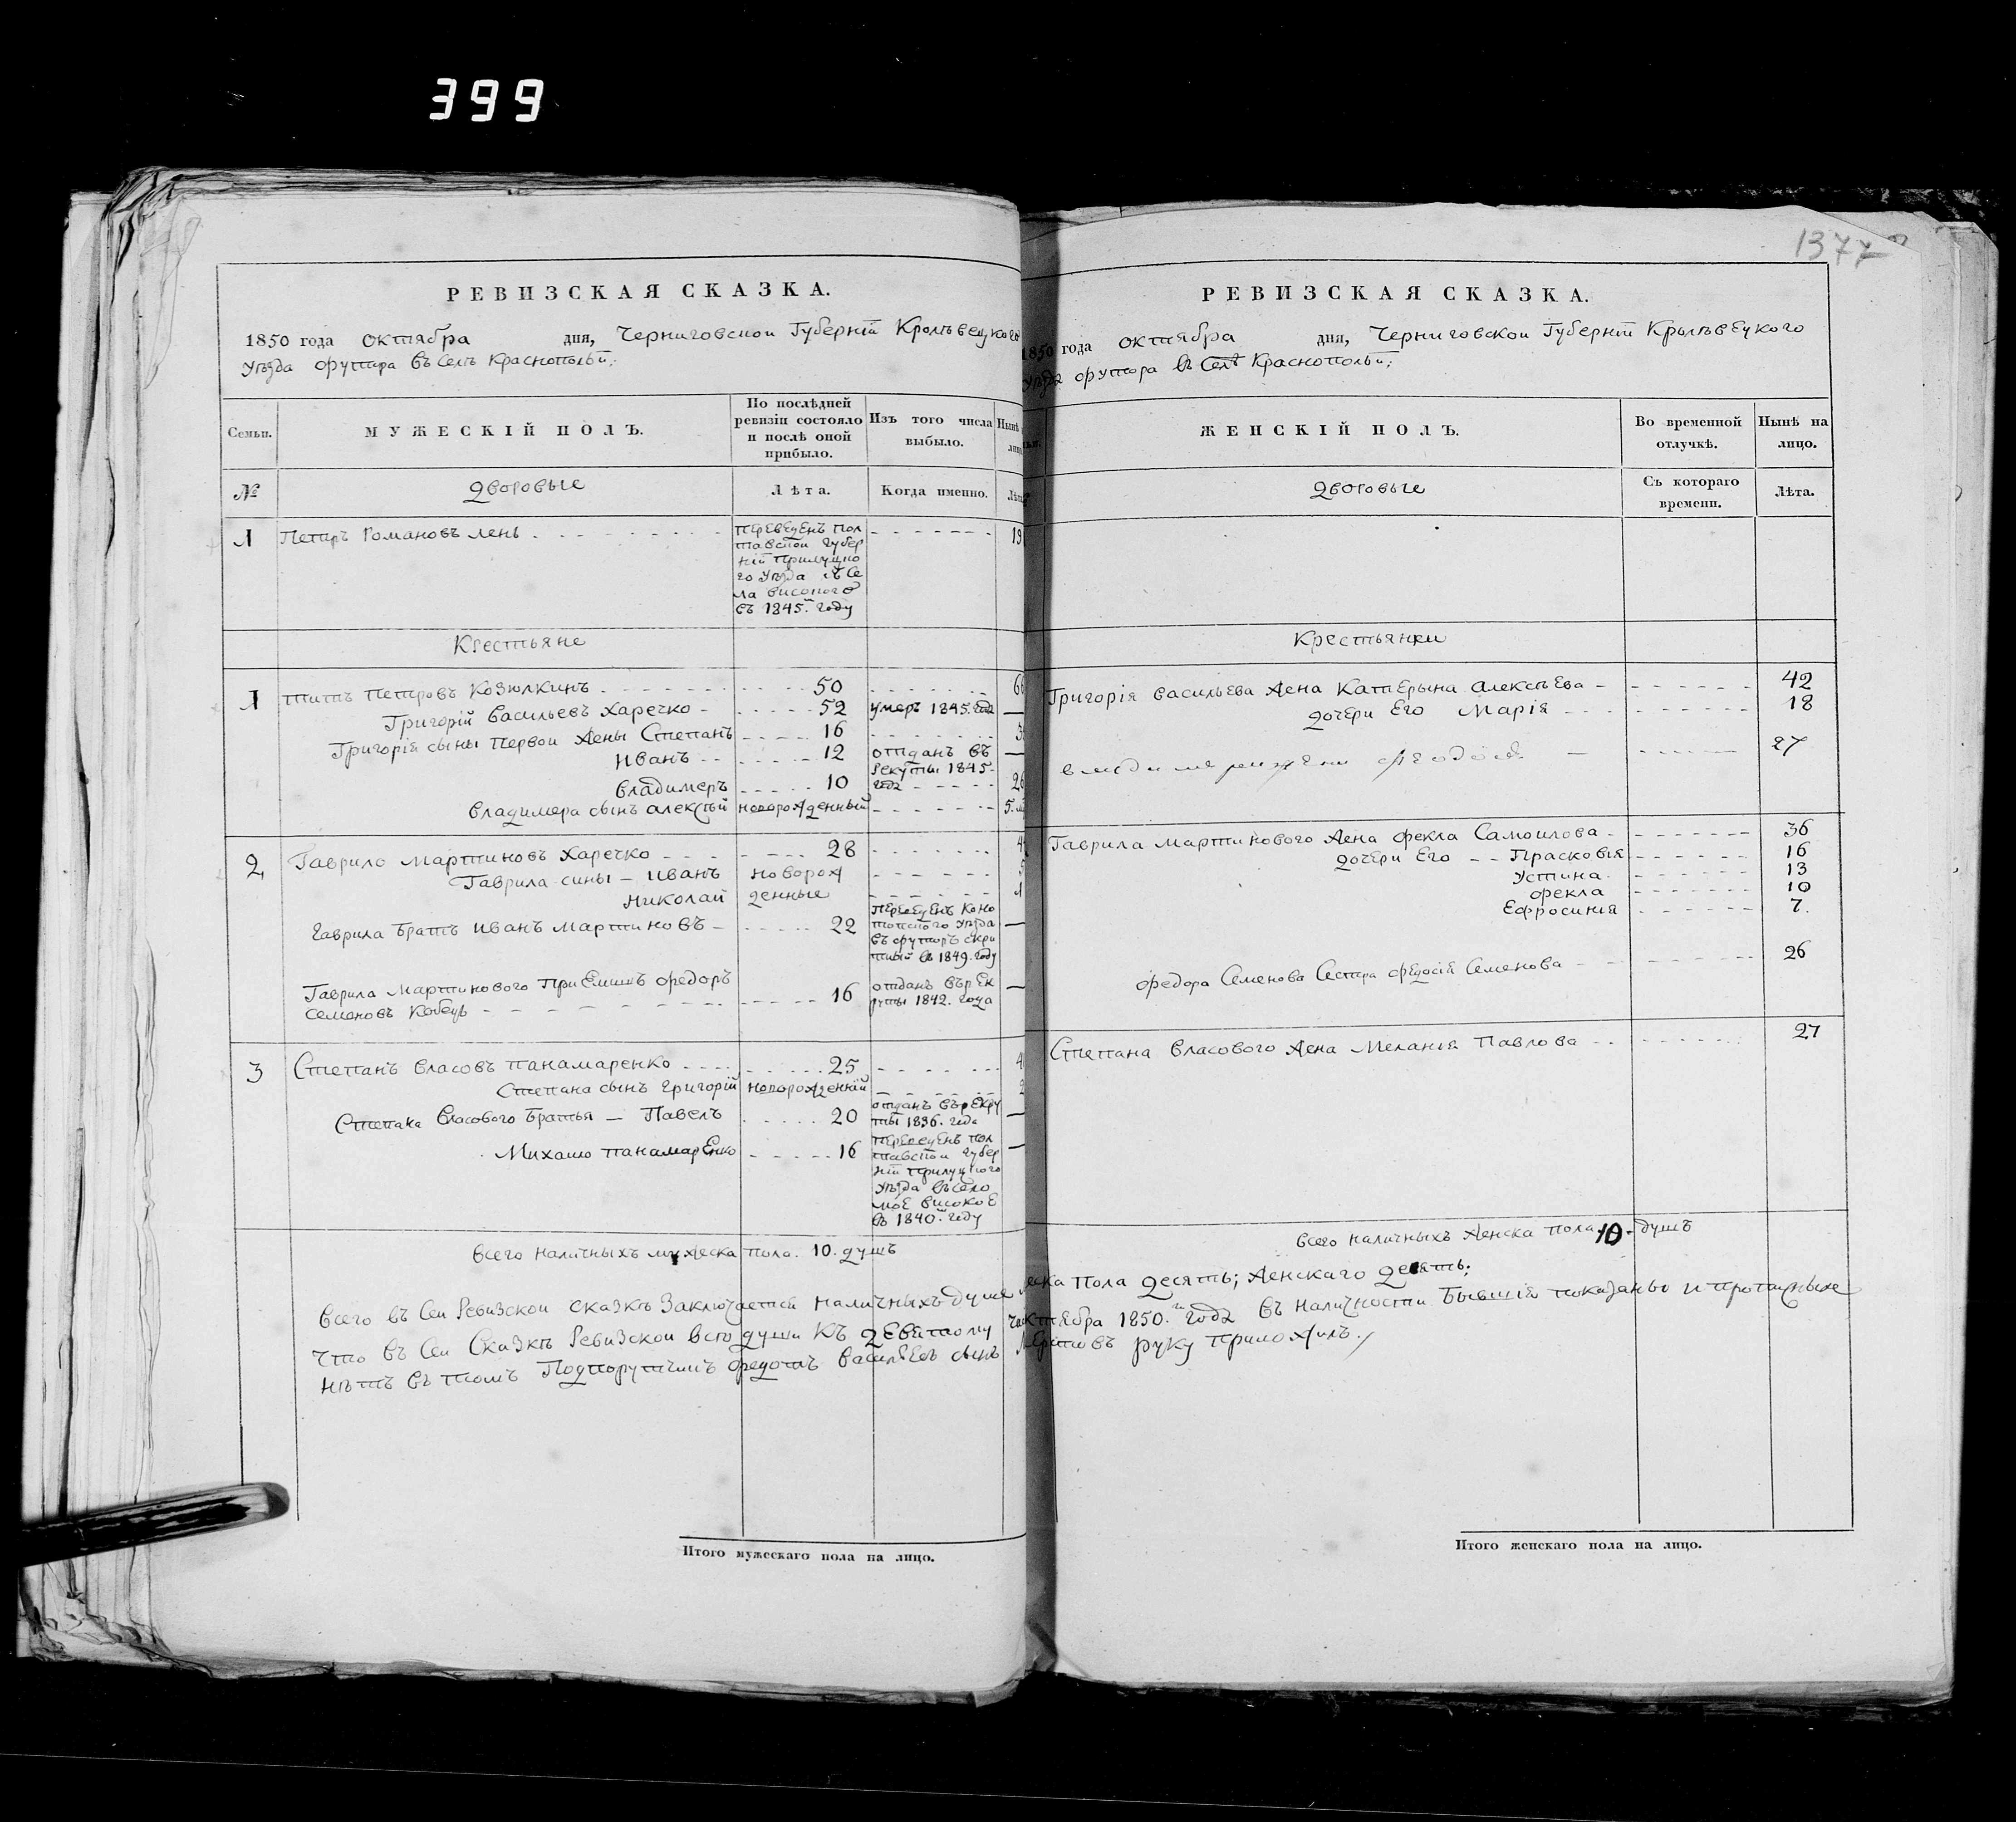 399
РЕВИЗСКАЯ СКАЗКА.
1850 года октября дня, Черниговской Губерніи Кролѣвецкого
уѣзда футора въ Селѣ Краснопольи;
Семьи.
МУЖЕСКІЙ ПОЛЪ.
По послѣдней
ревизіи состояло
и послѣ оной
прибыло.
Изъ того числа
выбыло.
Нынѣ
№
дворовые
Лѣта.
Когда именно.
1 Петръ Романовъ Лень 19
переведенъ Пол
тавской Губер
ніи Прилуцко
го уѣзда съ Се
ла високого
въ 1845 году
Крестьяне
1 Титъ Петровъ Козюлкинъ 50 66
Григорій Васильевъ Харечко 52 умеръ 1845 года —
Григорія сыны первой жены Степанъ 16
Иванъ 12 отданъ въ —
рекруты 1845
года
Владимеръ 10 26
Владимера сынъ Алексѣй новорожденный 5
2 Гаврило Мартиновъ Харечко 28
Гаврила сины — Иванъ новорож
Николай денные
Гаврила братъ Иванъ Мартиновъ — 22 —
переведенъ Коно
топского уѣзда
въ футоръ скри
въ 1849 году
Гаврила Мартинового приемишъ Федоръ
Семеновъ Кобецъ 16 —
отданъ въ рек
руты 1842 года
3 Степанъ Власовъ Панамаренко 25
Степана сынъ Григорій новорожденній
Степана Власового братья — Павелъ 20 —
отданъ въ рекру
ты 1836 года
Михайло Панамаренко 16 —
переведенъ Пол
тавской Губер
ніи Прилуцкого
уѣзда въ село
мое високое
въ 1840 году
всего наличныхъ мужеска пола 10 душъ
Итого мужескаго пола на лицо.
1377
РЕВИЗСКАЯ СКАЗКА.
1850 года октября дня, Черниговской Губерніи Крылѣвецкого
уѣзда футора въ Селѣ Краснопольи;
ЖЕНСКІЙ ПОЛЪ.
Во временной
отлучкѣ.
Нынѣ на
лицо.
дворовые
Съ котораго
времени.
Лѣта.
Крестьянки
Григорія Васильева жена Катерына Алексѣева — 42
дочери его Марія 18
27
Гаврила Мартинового жена Фекла Самоилова 36
дочери его — Прасковія 16
Устина 13
Фекла 10
Ефросинія 7.
Федора Семенова сестра Федосія Семенова 26
Степана Власового жена Меланія Павлова 27
всего наличныхъ женска пола 10 душъ
Итого женскаго пола на лицо.
Всего въ Сей Ревизской Сказкѣ Заключается наличныхъ душъ пола десять; женскаго десять;
Что въ Сей Сказкѣ Ревизской всѣ души къ девятому октября 1850 года въ наличности бывшія показаны и прописныхъ
нѣтъ въ томъ Подпоручикъ Федотъ Васильевъ сынъ руку приложилъ.